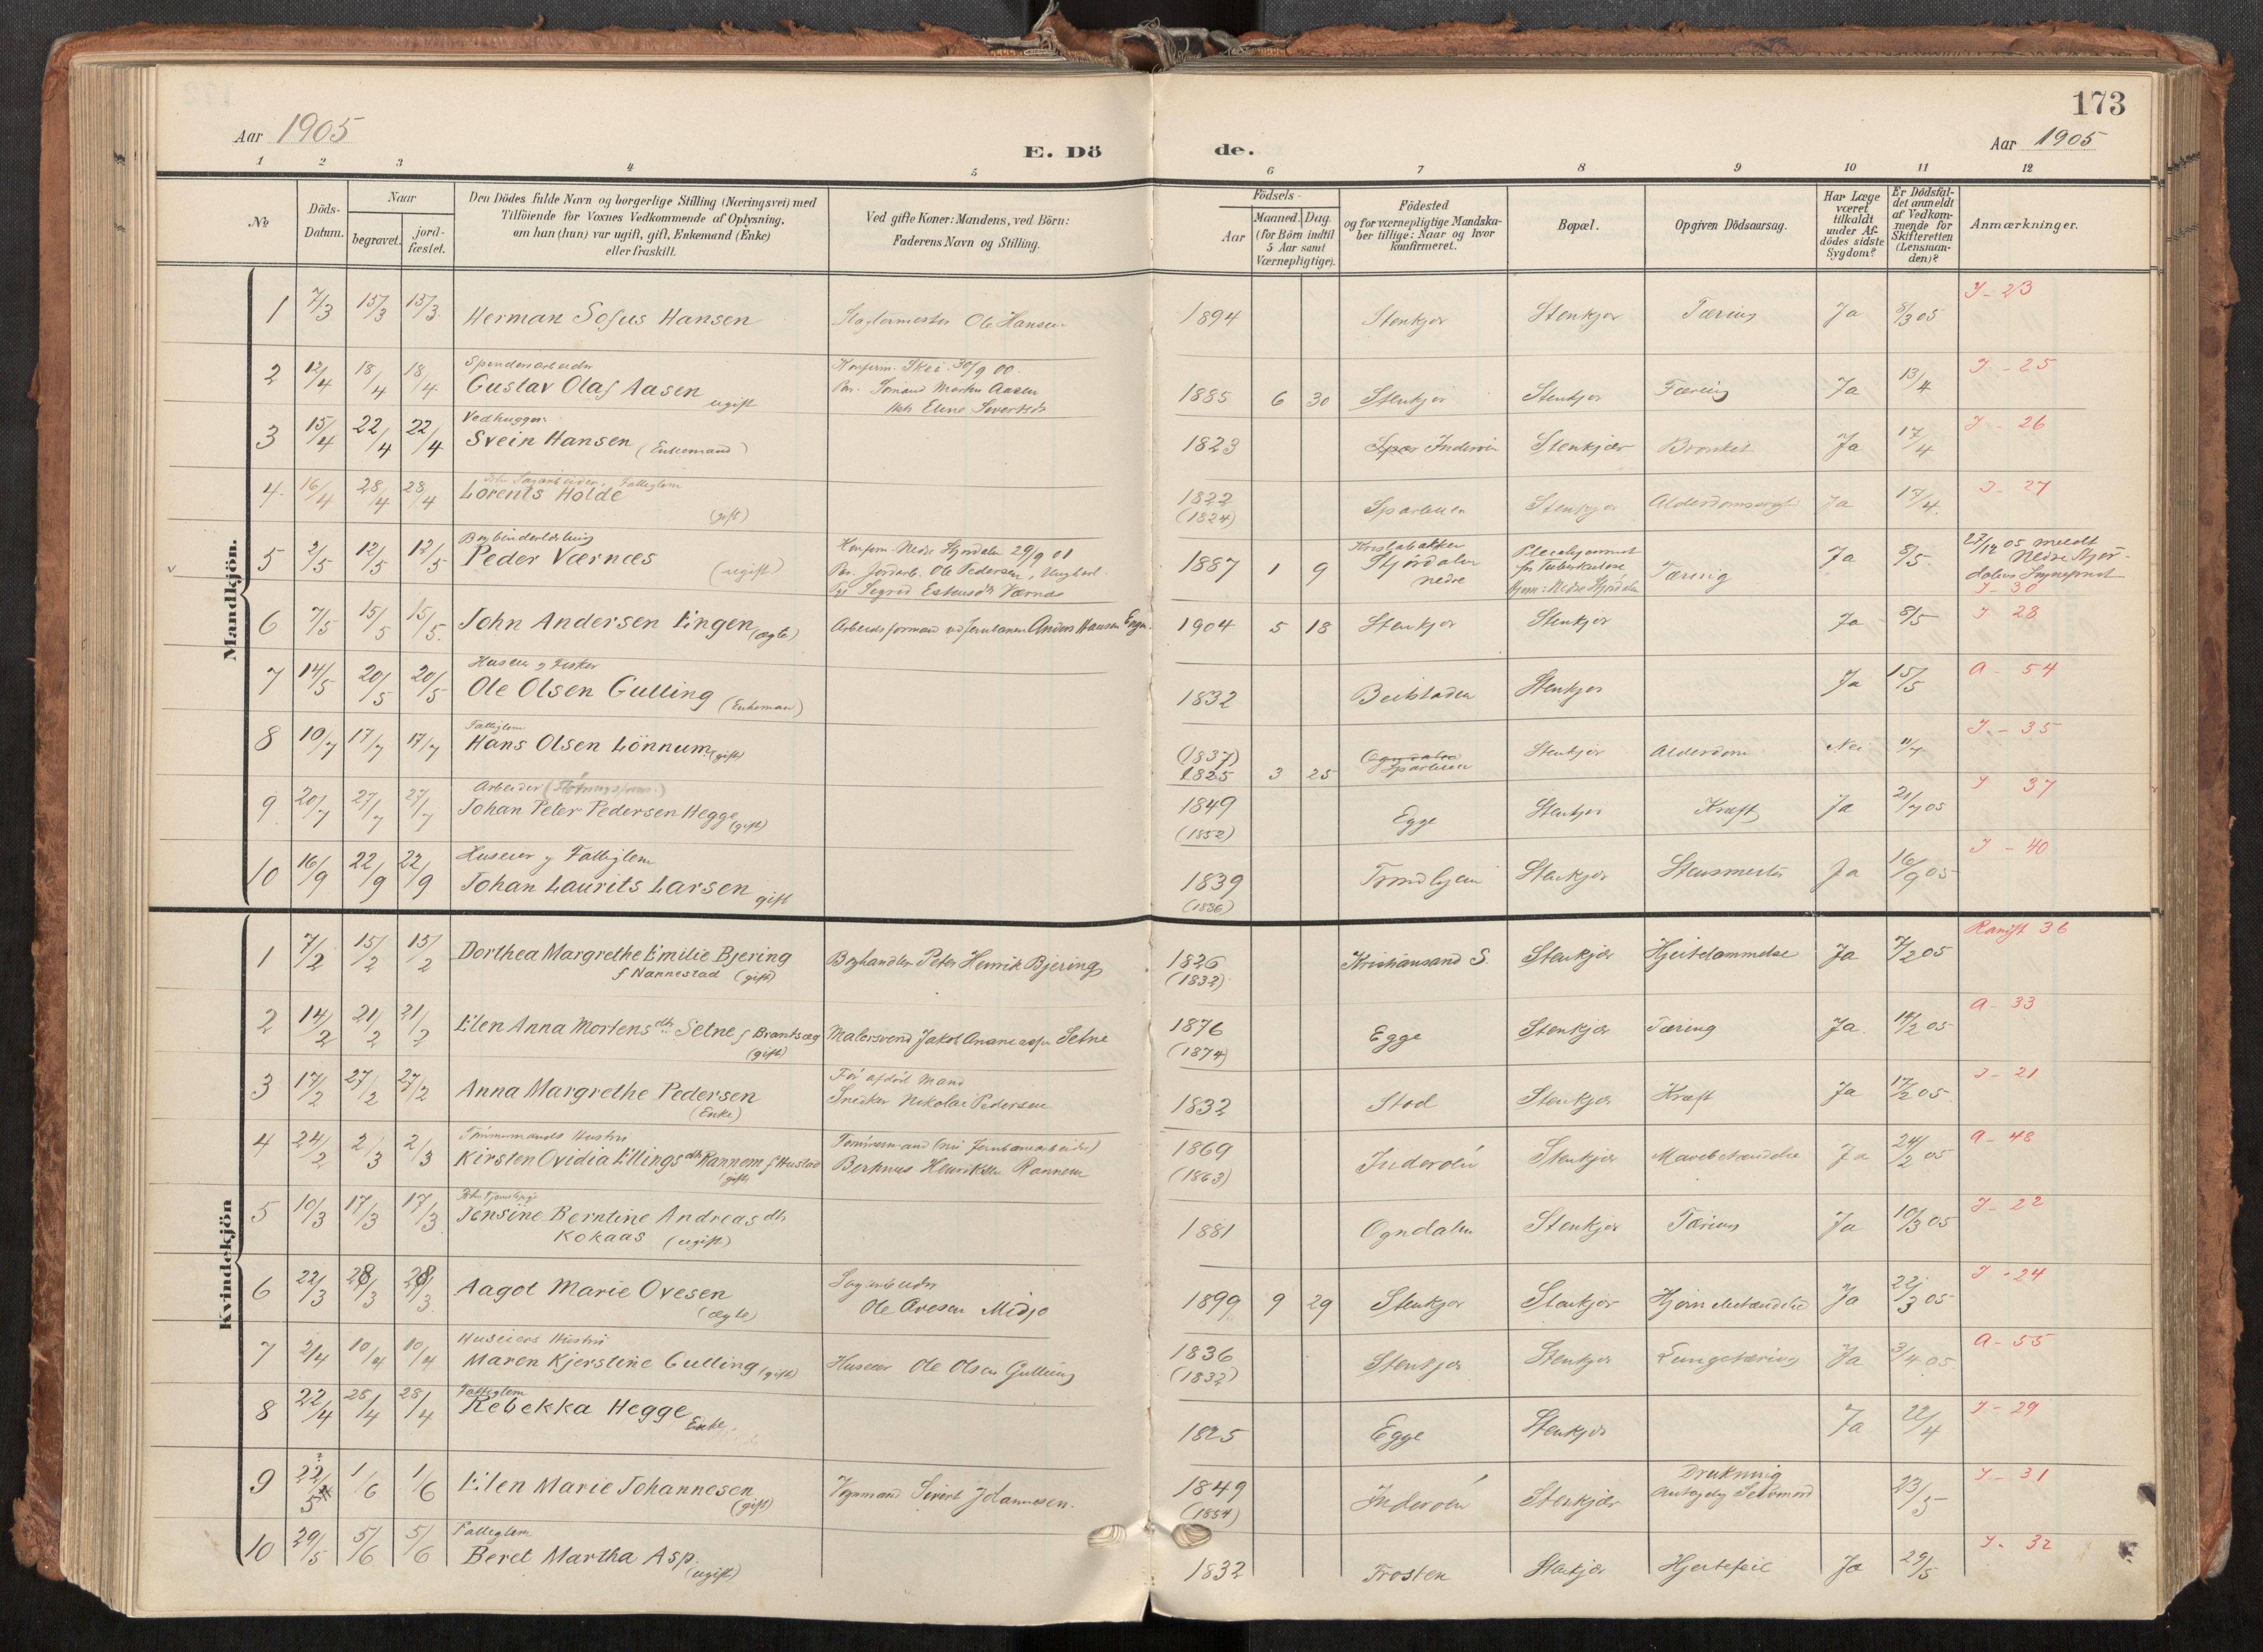 173
Aar 1905
E. Dö de.
Aar 1905
1 2 3 4 5 6 7 8 9 10 11 12
№
Döds-Datum.
Naar
begravet.
jord-fæstet.
Den Dödes fulde Navn og borgerlige Stilling (Næringsvei) med
Tilföiende for Voxnes Vedkommende af Oplysning,
om han (hun) var ugift, gift, Enkemand (Enke)
eller fraskilt.
Ved gifte Koner: Mandens, ved Börn:
Faderens Navn og Stilling.
Födsels-
Aar
Maaned. Dag
(for Börn indtil
5 Aar samt
Værnepligtige).
Födested
og for værnepligtige Mandska-
ber tillige: Naar og hvor
konfirmeret.
Bopæl.
Opgiven Dödsaarsag.
Har Læge
været
tilkaldt
under Af-
dödes sidste
Sygdom?
Er Dödsfal-
det anmeldt
af Vedkom-
mende for
Skifteretten
(Lensman-
den)?
Anmærkninger.
Mandkjön.
1 7/3 15/3 15/3 Herman Sofus Hansen Slagtermester Ole Hansen 1894 Stenkjer Stenkjer Tæring Ja 8/3 05 I - 23
Konfirm. Skei 30/9 00.
2 12/4 18/4 18/4 Gustav Olaf Aasen ugift Markus Aasen 1885 6 30 Stenkjer Stenkjer Tæring Ja 13/4 I - 25
Eline Sivertsdr
Vedhugger
3 15/4 22/4 22/4 Svein Hansen (Enkemand) 1823 Inderöen Stenkjær Bronkit Ja 17/4 I - 26
Sagarbeider, Fattiglem
4. 16/4 28/4 28/4 Lorents Holde (gift) 1822 (1824) Sparbuen Stenkjer Ja 17/4. I - 27
Konfirm. Nedre Stjördalen 29/9 01
5 2/5 12/5 12/5 Peder Værnæs (ugift) Ole Pedersen 1887 1 9 Stjördalen nedre Pleiehjemmet for Tuberkulose Tæring Ja 8/5. 27/12 05 meldt Nedre Stjör-
Hjem: Nedre Stjördalen
dalens Sogneprest
I - 30
6 7/5 15/5 15/5. John Andersen Eingen (ægte) Arbeidsformand ved Jernbanen Anders Hansen 1904 5 18 Stenkjer Stenkjer Ja 8/5 I 28
Huseier og Fisker
7 14/5 20/5 20/5 Ole Olsen Gulling (Enkeman) 1832 Beitstaden Stenkjer Ja 15/5 a - 54
Fattiglem
8 10/7 17/7 17/7 Hans Olsen Lönnum (gift) (1837) 1825 3 25 Ogndalen Sparbuen Stenkjer Alderdom Nei 11/7 I. - 35
Arbeider
9 20/7 27/7 27/7 Johan Peter Pedersen Hegge (gift) 1849 (1852) Egge Stenkjer Kræft Ja 21/7 05 I 37
Huseier og Fattiglem
10 16/9 22/9 22/9 Johan Laurits Larsen gift 1839 (1836) Trondhjem Stenkjer Ja 16/9 05 I - 40
Kvindekjön
1 7/2 15/2 15/2 Dorthea Margrethe Emilie Bjering Boghandler Peter Henrik Bjering 1826 (1832) Kristiansand S. Stenkjer Hjertelammelse Ja 7/2 05 36
f Nannestad (gift)
2 14/2 21/2 21/2 Elen Anna Mortensdtr Setne f Brantsæg (gift) Malersvend Jakob Setne 1876 (1874) Egge Stenkjer Tæring Ja. 14/2 05 a - 33
For afdöd Mand
3 17/2 27/2 27/2 Anna Margrethe Pedersen (Enke) Snedker Nikolai Pedersen 1832 Stod Stenkjer Kræft Ja 17/2 05. I - 21
Tömmermands Hustru Tömmermand (nu Jernbanearbeider)
4 24/2 2/3 2/3 Kirsten Ovidia Ellingsdtr Rannem f Hustad (gift) Henriksen Rannem 1869 (1863) Inderöen Stenkjer Mavebetændelse Ja 24/2 05 a - 48
5 10/3 17/3 17/3 Jensine Berntine Andreasdtr 1881 Ogndalen Stenkjer Tæring Ja 10/3 05 I - 22
Kokaas (ugift)
Sagarbeider
6 22/3 28/3 28/3 Aagot Marie Ovesen (ægte) Ole Ovesen Midjo 1899 9 29 Stenkjer Stenkjer Hjernebetændelse Ja 22/3 05 I - 24
Huseiers Hustru
7 2/4 10/4 10/4 Maren Kjerstine Gulling (gift) Huseier Ole Olsen Gulling 1836 (1832) Stenkjer Stenkjer Lungetæring Ja 3/4 05 a - 55
Fattiglem
8 22/4 28/4 28/4 Rebekka Hegge Enke 1825 Egge Stenkjer Ja 22/4 I - 29
9 22/5 1/6 1/6 Elen Marie Johannesen (gift) Vognmand Sivert Johannesen. 1849 (1854) Inderöen Stenkjær Drukning antagelig Selvmord 23/5 I - 31
Fattiglem
10 29/5 5/6 5/6 Beret Martha Asp. (ugift) 1832 Frosten Stenkjær Hjertefeil Ja 29/5 I - 32